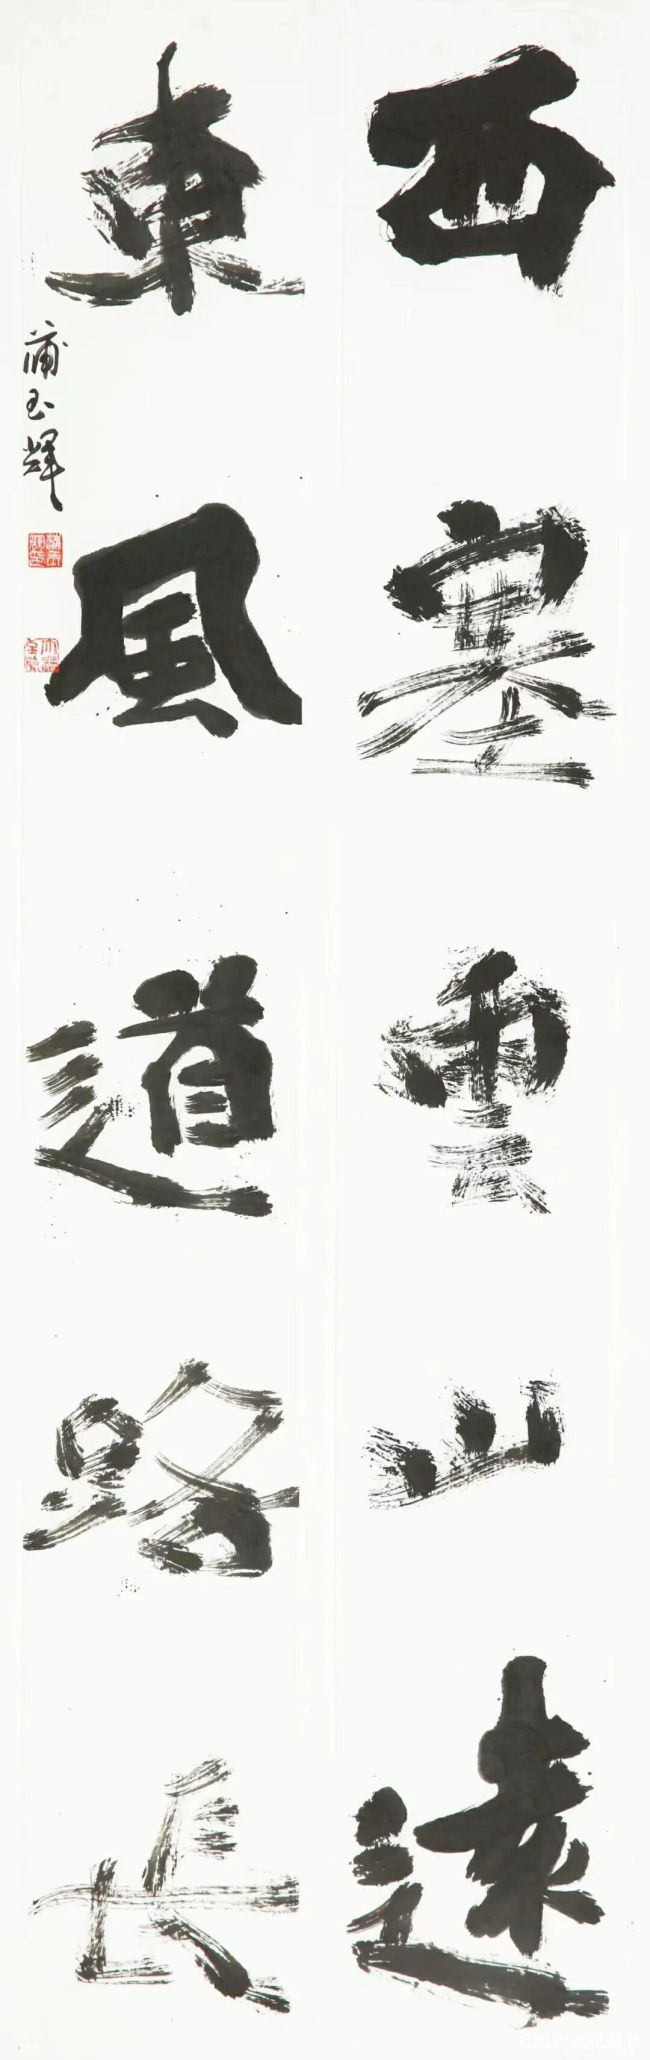 西塞雲山遠
東風道路長
蒲玉輝